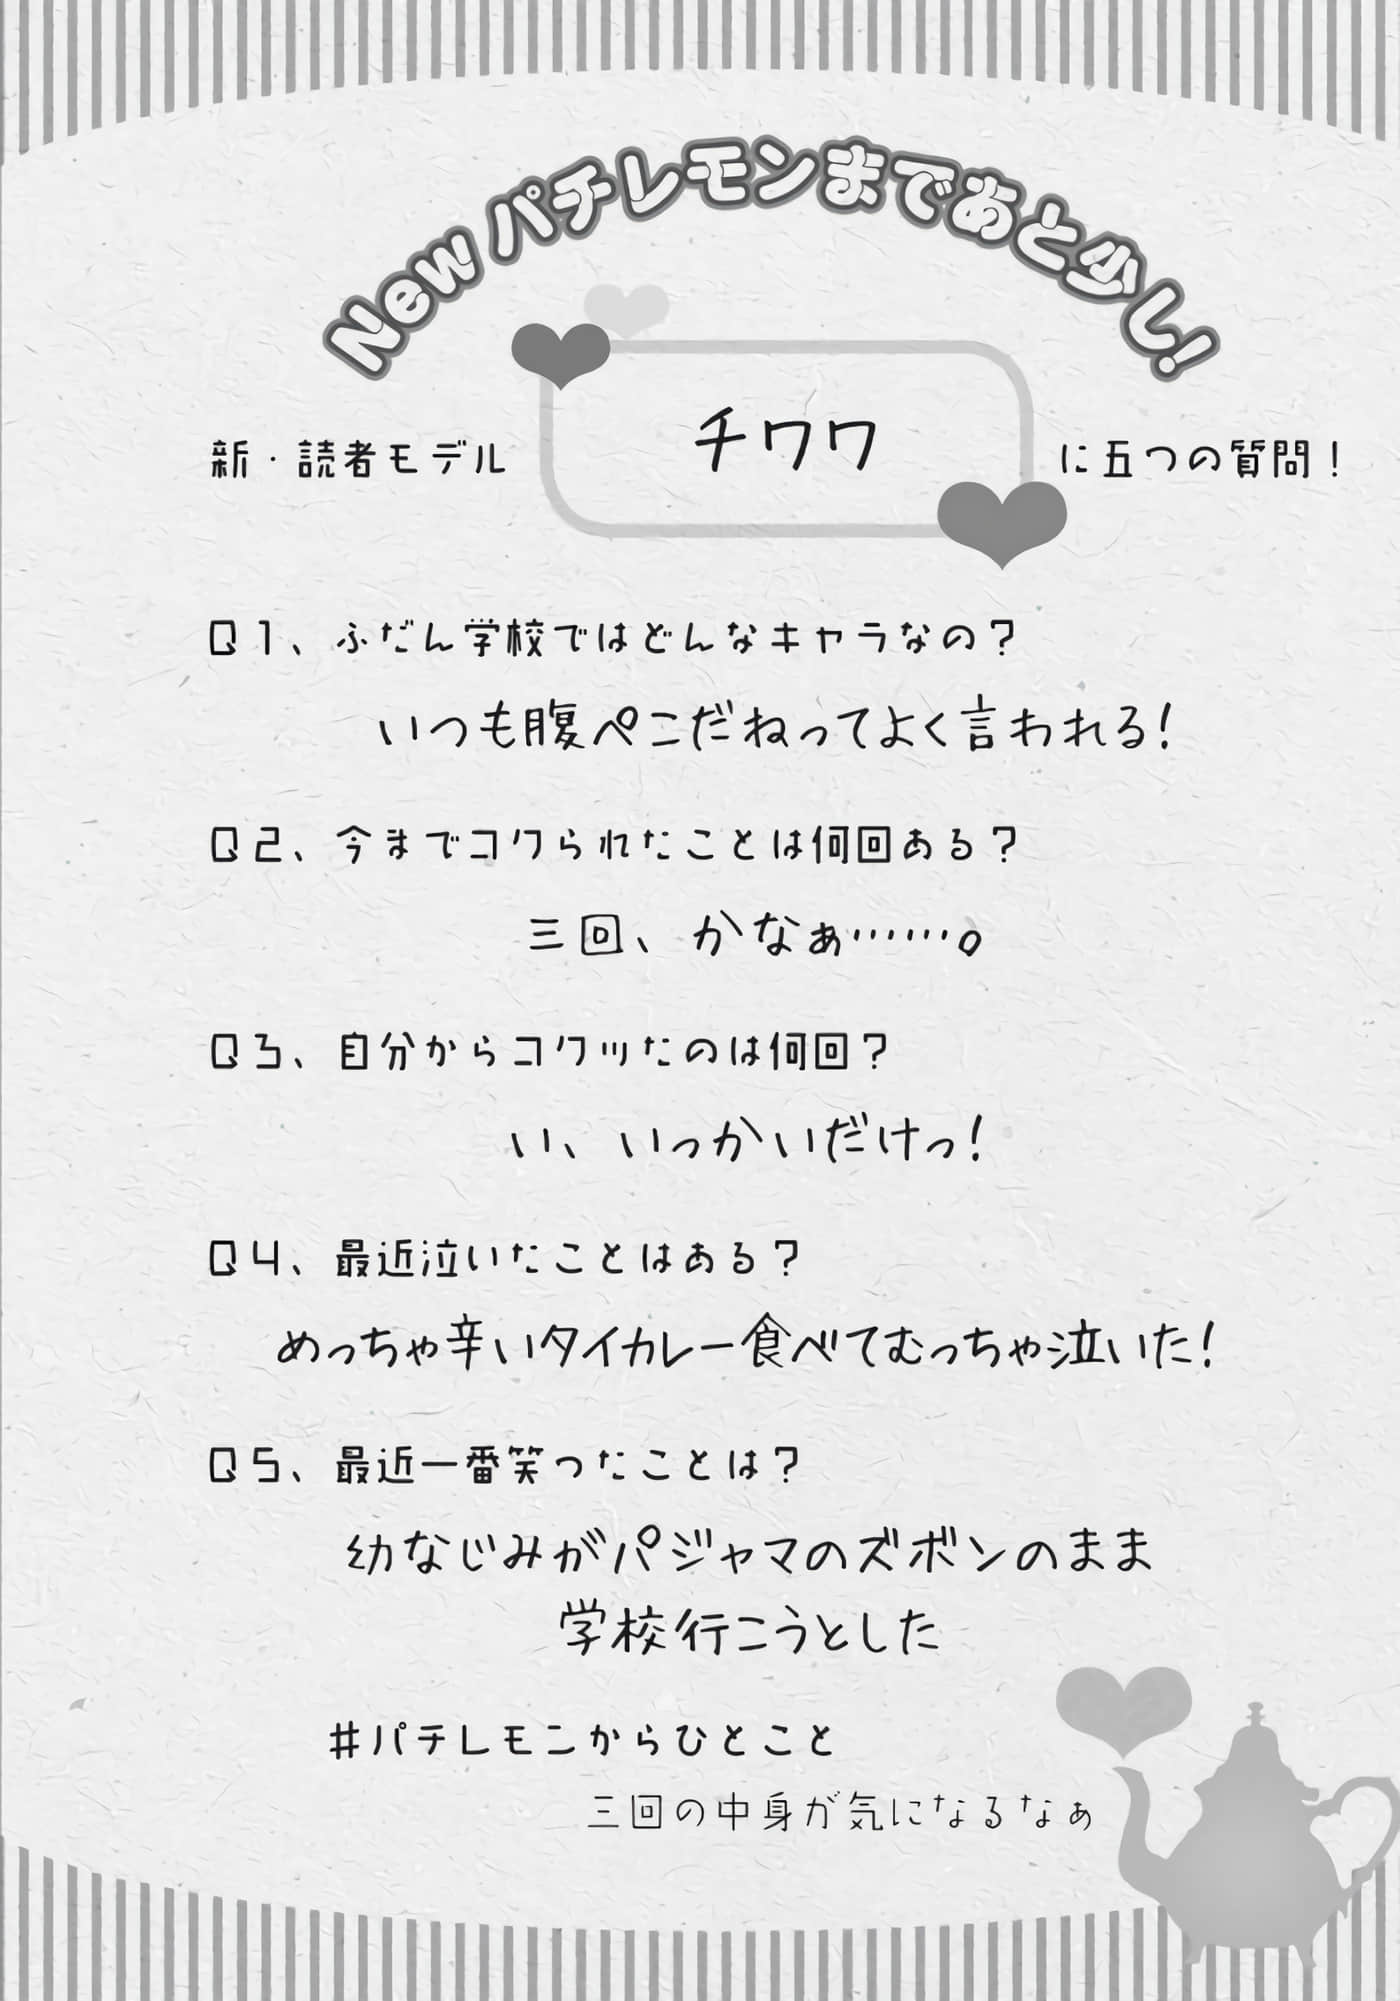 New パチレモンまであと少し!
新・読者モデル チワワ に五つの質問！
Q1、ふだん学校ではどんなキャラなの？
いつも腹ペこだねってよく言われる！
Q2、今までコクられたことは何回ある？
三回、かなぁ……。
Q3、自分からコクッたのは何回？
い、いっかいだけっ！
Q4、最近泣いたことはある？
めっちゃ辛いタイカレー食べてむっちゃ泣いた！
Q5、最近一番笑ったことは？
幼なじみがパジャマのズボンのまま
学校行こうとした
#パチレモンからひとこと
三回の中身が気になるなぁ